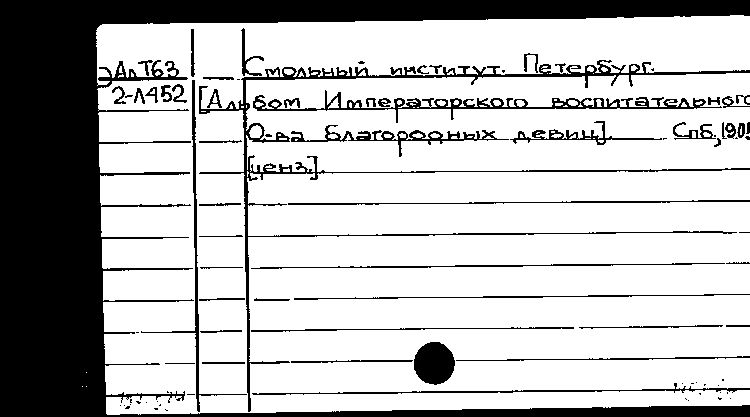 ЭАлТ63 Смольный институт. Петербург.
2-Л452 [Альбом Императорского воспитательного
О-ва благородных девиц]. Спб, 1905
[ценз.].